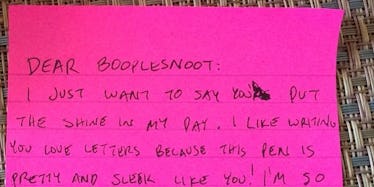 DEAR BOOPLESNOOT:
I JUST WANT TO SAY YOU PUT
THE SHINE IN MY DAY. I LIKE WRITING
YOU LOVE LETTERS BECAUSE THIS PEN IS
PRETTY AND SLEEK LIKE YOU! I'M SO